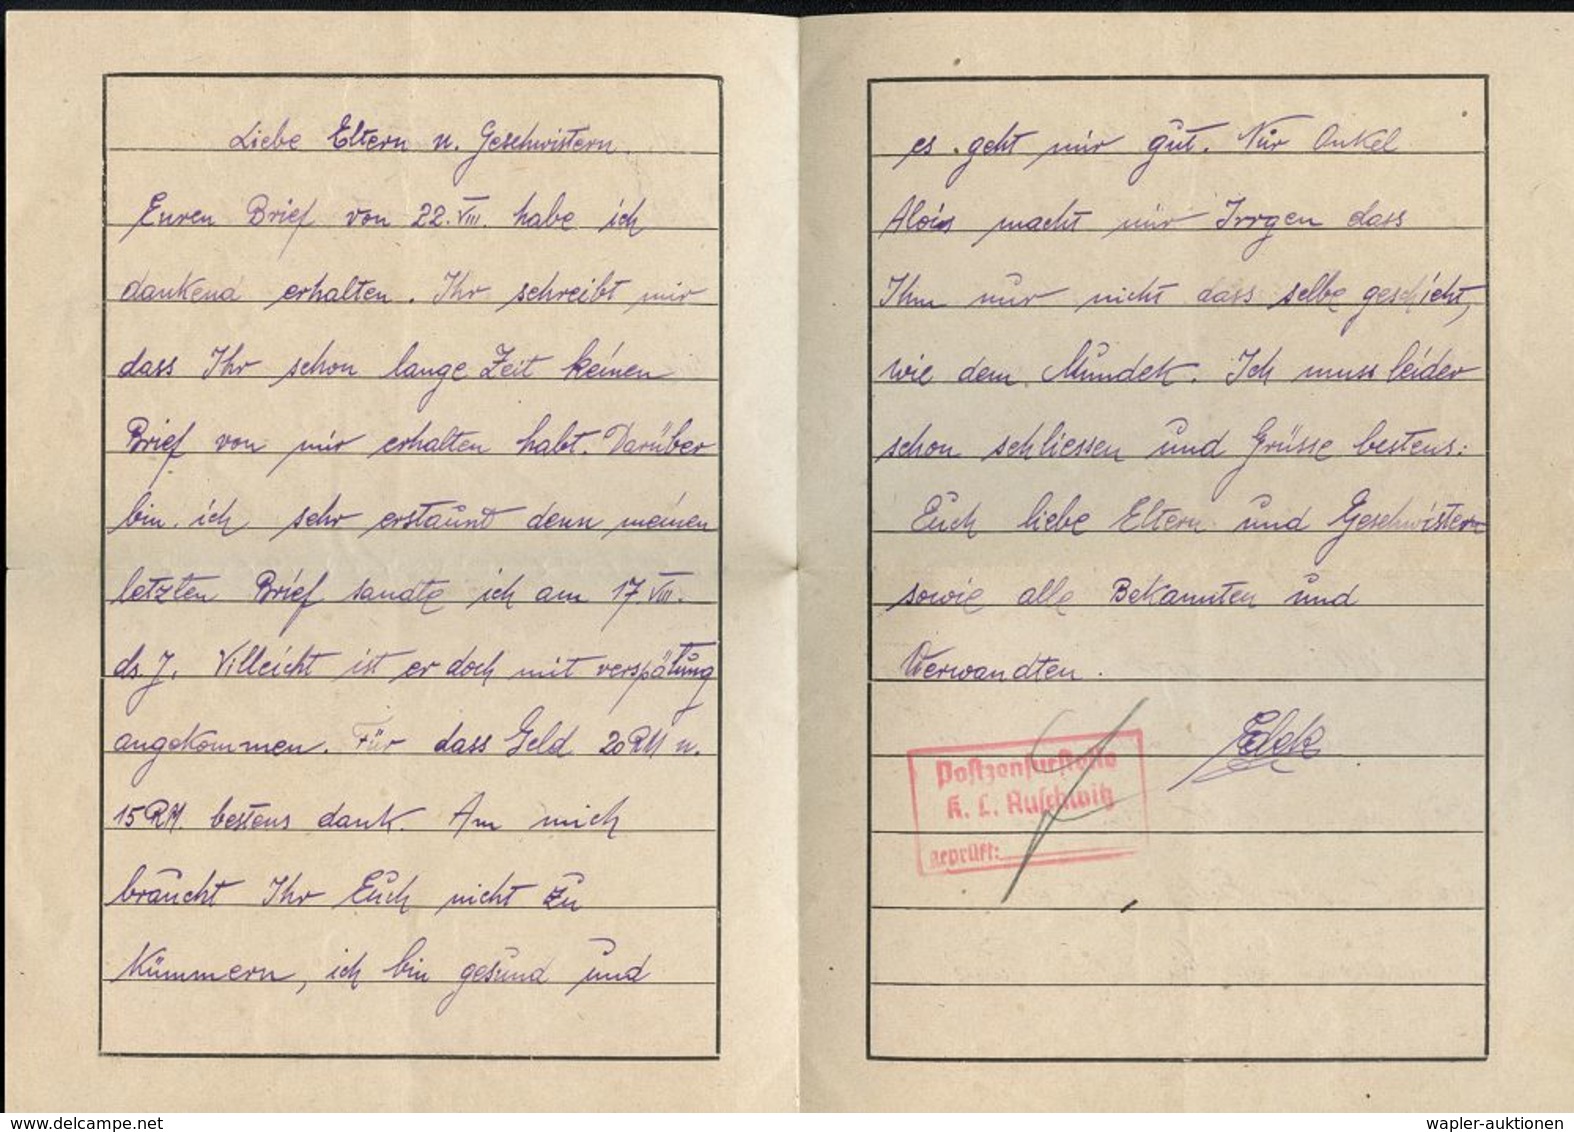 Liebe Eltern u. Geschwistern.
Euren Brief von 22.VIII. habe ich
dankend erhalten. Ihr schreibt mir
dass Ihr schon lange Zeit keinen
Brief von mir erhalten habt. Darüber
bin ich sehr erstaunt denn meinen
letzten Brief sandte ich am 17.VIII.
ds. J. Villeicht ist er doch mit verspätung
angekommen. Für dass Geld 20RM u.
15RM. bestens dank. Am mich
braucht Ihr Euch nicht zu
Kümmern, ich bin gesund und
es geht mir gut. Nur Onkel
Alois macht mir Sorgen dass
Ihm nur nicht dass selbe geschieht,
wie dem Mundek. Ich muss leider
schon schliessen und Grüsse bestens:
Euch liebe Eltern und Geschwistern
sowie alle Bekannten und
Verwandten.
Edek
Postzensurstelle
K. L. Auschwitz
geprüft:
www.delcampe.net
wapler-auktionen